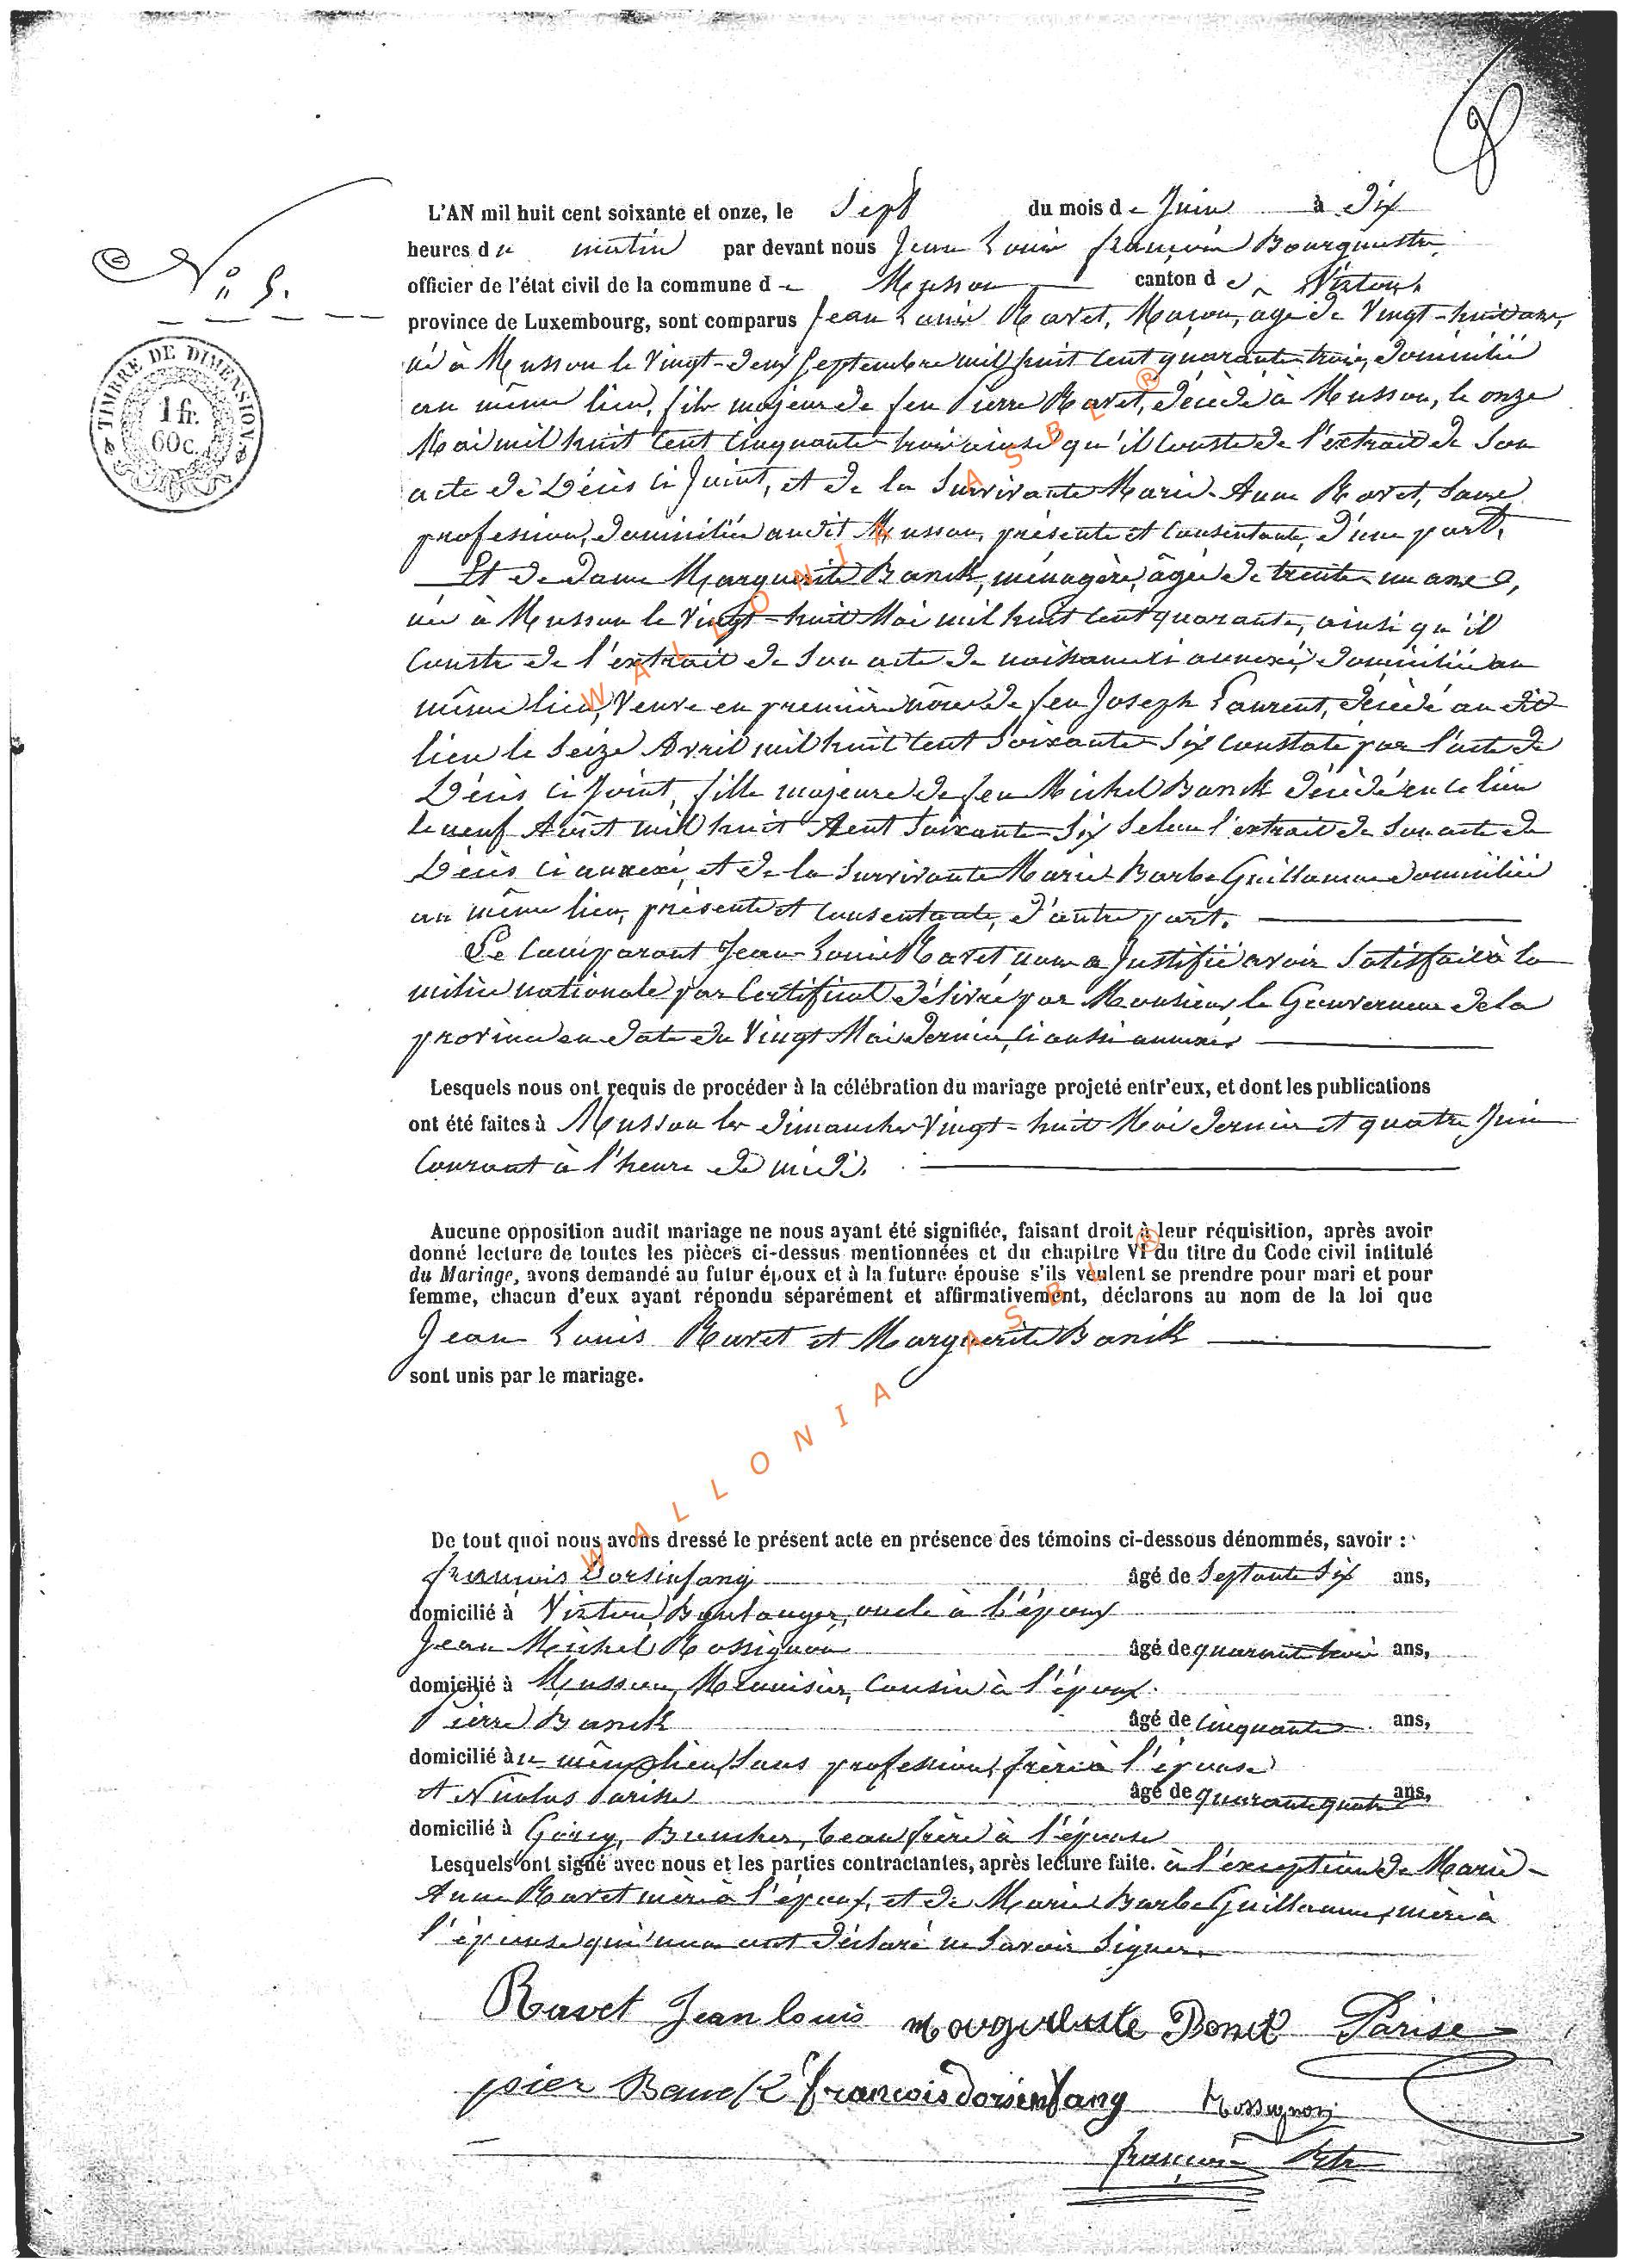 8
N° 5.
TIMBRE DE DIMENSION.
1 fr.
60 c.
L'AN mil huit cent soixante et onze, le Sept du mois de Juin à Dix
heures du matin par devant nous Jean Louis François Bourgmestre,
officier de l'état civil de la commune de Musson canton de Virton,
province de Luxembourg, sont comparus Jean Louis Ravet, Maçon, agé de Vingt-huit ans,
né à Musson le Vingt-deux Septembre mil huit cent quarante trois, domicilié
au même lieu, fils majeur de feu Pierre Ravet, décédé à Musson, le onze
Mai mil huit cent cinquante trois ainsi qu'il conste de l'extrait de son
acte de Décès ci Joint, et de la Survivante Marie-Anne Ravet, sans
profession, domiciliée audit Musson, présente et consentante, d'une part,
Et de dame Marguerite Banck, ménagère, âgée de trente-un ans,
née à Musson le Vingt-huit Mai mil huit cent quarante, ainsi qu'il
conste de l'extrait de son acte de naissance ci annexé, domiciliée au
même lieu, Veuve en première nôce de feu Joseph Laurent, décédé au dit
lieu le Seize Avril mil huit cent Soixante-Six constaté par l'acte de
Décès ci Joint, fille majeure de feu Michel Banck décédé en ce lieu
le neuf Août mil huit Cent Soixante-Six selon l'extrait de son acte de
Décès ci annexé, et de la Survivante Marie-Barbe Guillaume domiciliée
au même lieu, présente et consentante, d'autre part.
Le Comparant Jean-Louis Ravet nous a Justifié avoir Satisfait à la
milice nationale par Certificat délivré par Monsieur le Gouverneur de la
province en date du Vingt Mai dernier, ci aussi annexé
Lesquels nous ont requis de procéder à la célébration du mariage projeté entr'eux, et dont les publications
ont été faites à Musson les dimanches Vingt-huit Mai dernier et quatre Juin
Courant à l'heure de midi.
Aucune opposition audit mariage ne nous ayant été signifiée, faisant droit à leur réquisition, après avoir
donné lecture de toutes les pièces ci-dessus mentionnées et du chapitre VI du titre du Code civil intitulé
du Mariage, avons demandé au futur époux et à la future épouse s'ils veulent se prendre pour mari et pour
femme, chacun d'eux ayant répondu séparément et affirmativement, déclarons au nom de la loi que
Jean Louis Ravet et Marguerite Banck
sont unis par le mariage.
De tout quoi nous avons dressé le présent acte en présence des témoins ci-dessous dénommés, savoir :
François Dorsinfang âgé de Septante Six ans,
domicilié à Virton, Boulanger, oncle à l'époux
Jean Michel Rossignon âgé de quarante trois ans,
domicilié à Musson, Menuisier, Cousin à l'époux.
Pierre Banck âgé de cinquante ans,
domicilié au même lieu, Sans profession, frère à l'épouse
et Nicolas Parise âgé de quarante quatre ans,
domicilié à Gorcy, Boucher, beau frère à l'épouse
Lesquels ont signé avec nous et les parties contractantes, après lecture faite. à l'exception de Marie-
Anne Ravet mère à l'époux, et de Marie Barbe Guillaume, mère à
l'épouse qui nous ont déclaré ne savoir Signer.
Ravet Jean louis Marguerite Banck Parise
pier Banck francois dorsenfang Rossignon
François
WALLONIA ASBL ®
WALLONIA ASBL ®